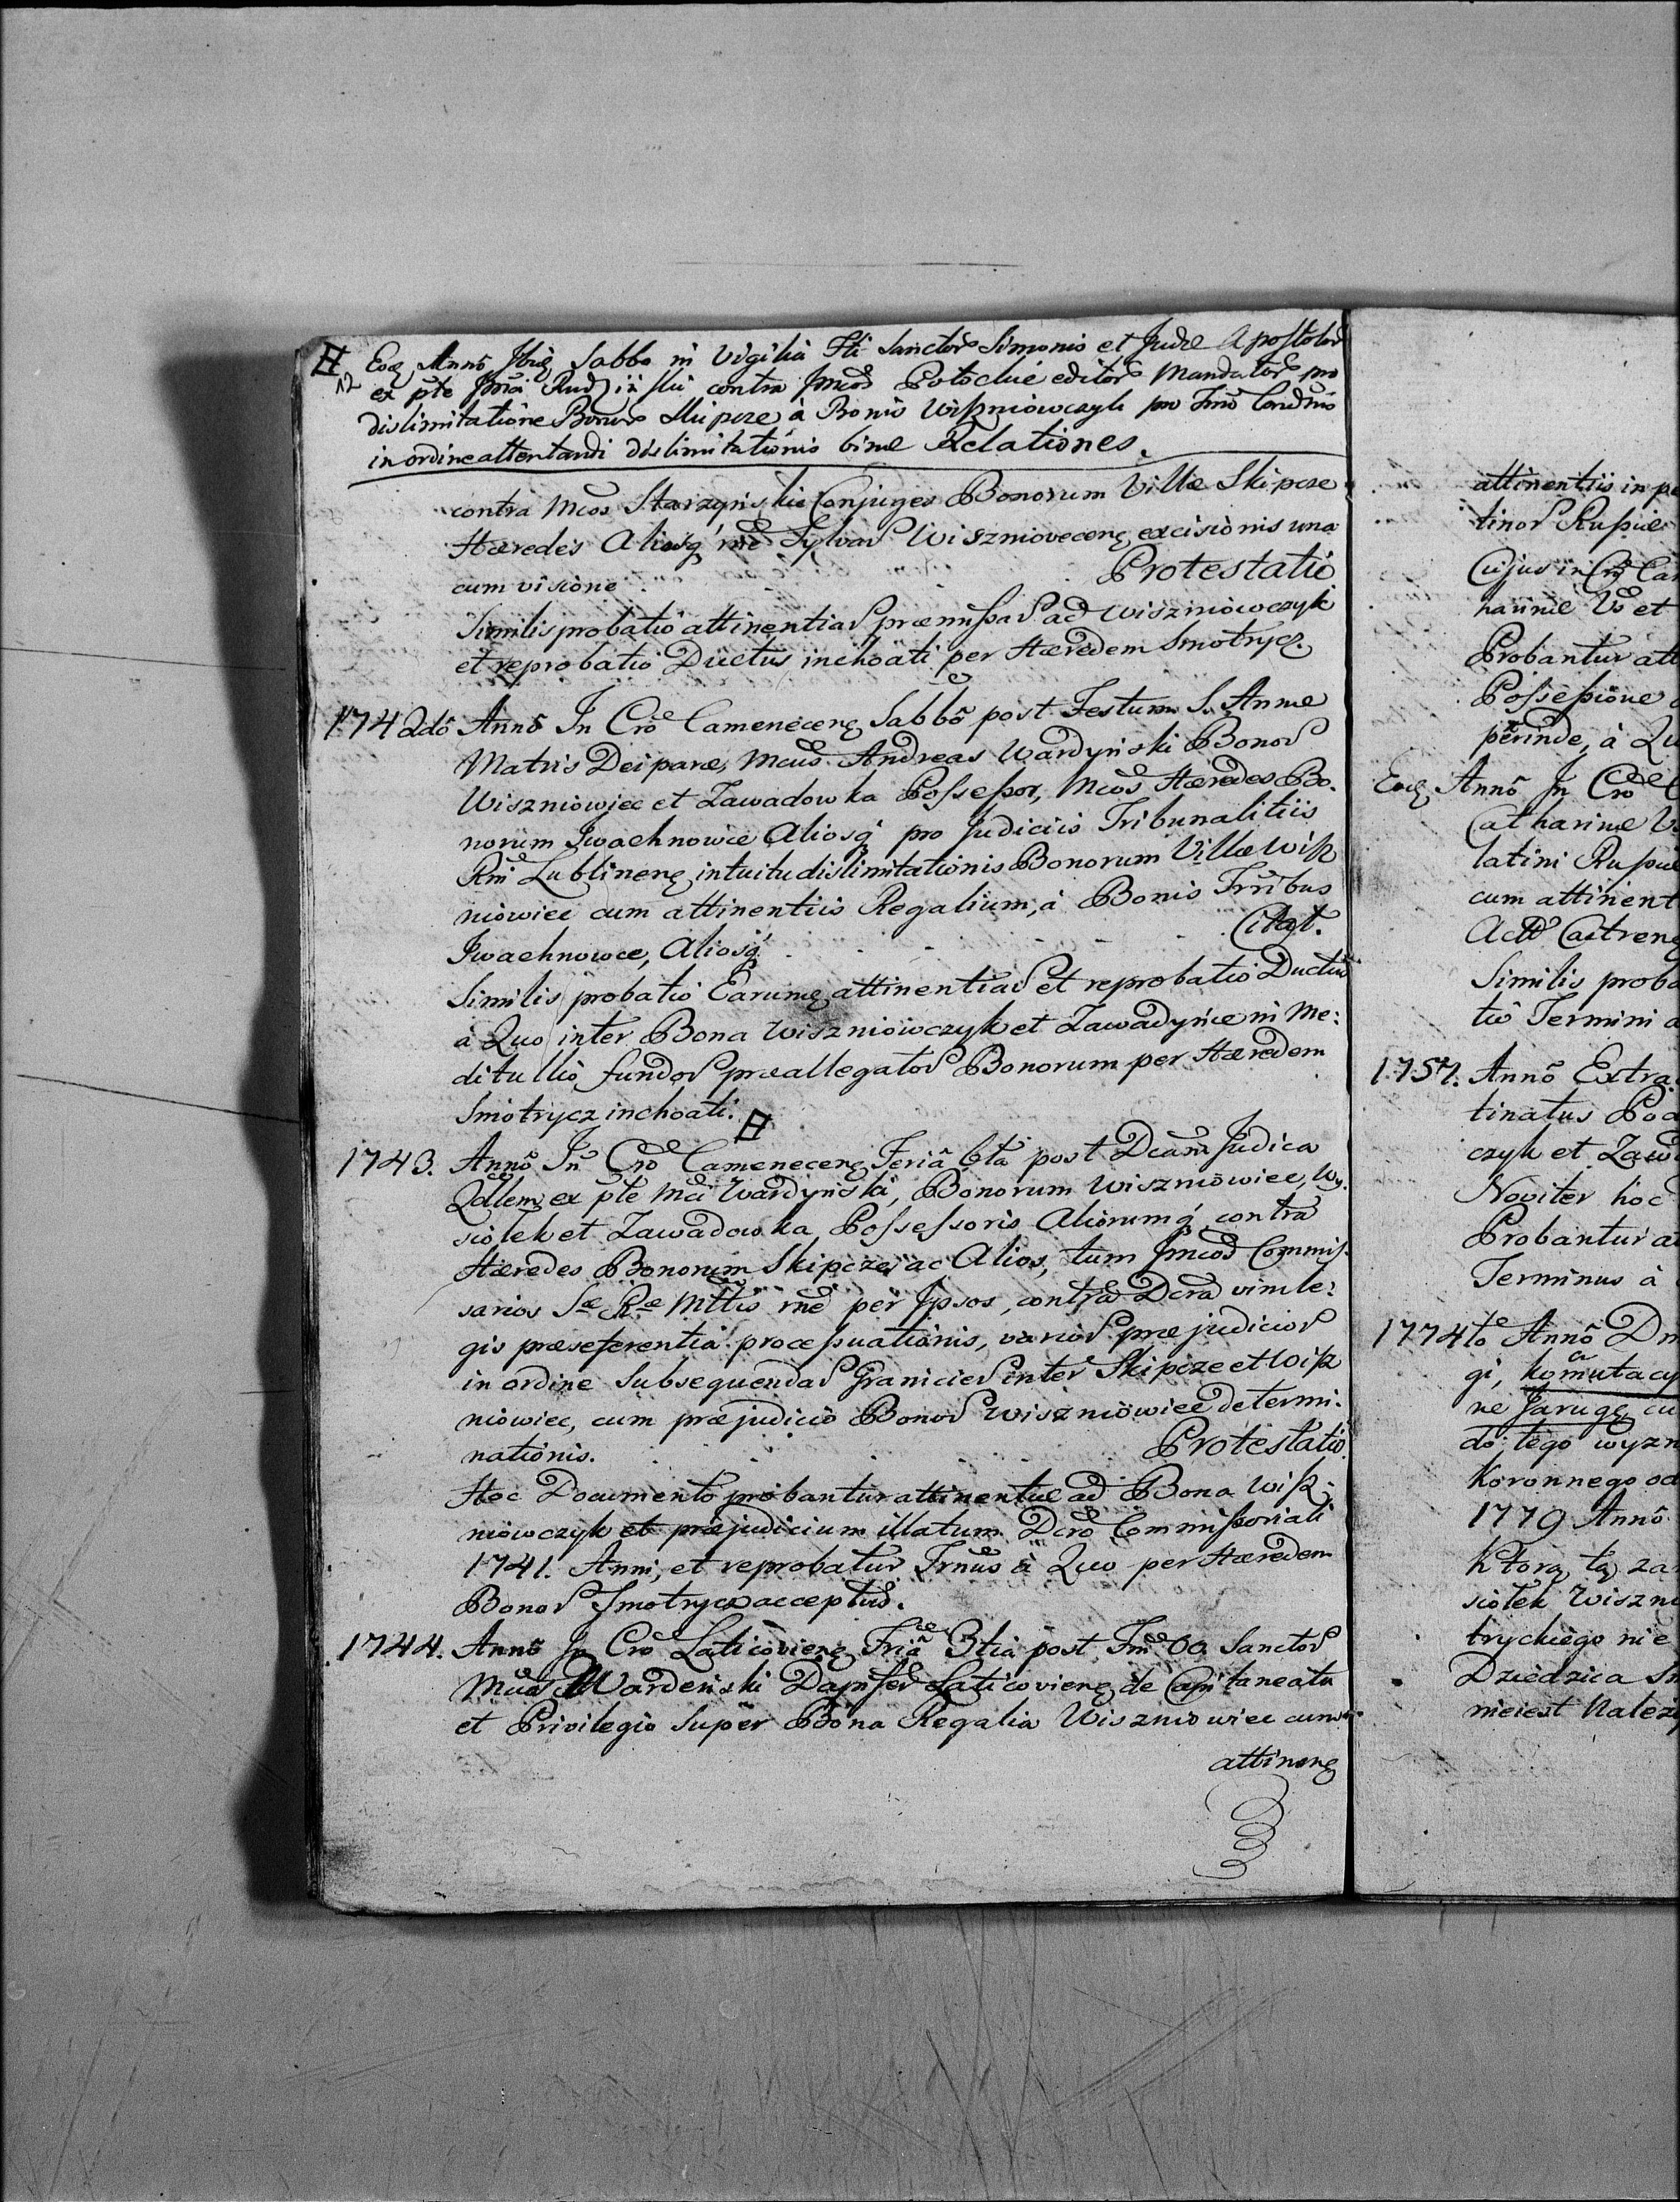 Eod Anno Ibid Sabbo in Vigilia Fti Sanctor Simonis et Judæ Apostolor
ex pte contra Potockie editor Mandator pro
dislimitatione Bonor Skipcze à Bonis Wiszniowczyk pro
in ordine attentandi dislimitationis binæ Relationes.
contra Mcos Starzynskie Conjuges Bonorum Villæ Skipcze
Hæredes Aliosq rne Sylvar Wisznioveceng excisionis una
cum visione Protestatio
Similis probatio attinentiar præmissar ad Wiszniowczyk
et reprobatio Ductus inchoati per Hæredem Smotrycz.
1742do Anno In Cro Cameneceng Sabbo post Festum S. Annæ
Matris Deiparæ, Mcus Andreas Wardynski Bonor
Wiszniowiec et Zawadowka Possessor, Mcos Hæredes Bo-
norum Iwachnowce Aliosq pro Judiciis Tribunalitiis
Rni Lublineng intuitu dislimitationis Bonorum Villæ Wisz
niowiec cum attinentiis Regalium, à Bonis Trribus
Iwachnowce, Aliosq . . . . Citat.
Similis probatio Earumq attinentiar et reprobatio Ductus
à Quo inter Bona Wiszniowczyk et Zawadynce in Me:
ditullio fundor præallegator Bonorum per Hæredem
Smotrycz inchoati.
1743. Anno In Cro Cameneceng Feria 6ta post Dcam Judica
Qdlem, ex pte Mci Wardynski, Bonorum Wiszniowiec, Wy-
siolek et Zawadowka Possessoris Aliorumq contra
Hæredes Bonorum Skipcze, ac Alios, tum Jmcos Commis-
sarios Sæ Ræ Mttis rne per Ipsos, contra Dcra vim le:
gis præseferentia processuationis, varior præjudicior
in ordine Subsequendar Granicier inter Skipcze et Wisz
niowiec, cum præjudicio Bonor Wiszniowiec determi-
nationis. . . . . Protestatio
Hoc Documento probantur attinentiæ ad Bona Wisz-
niowczyk et præjudicium illatum Dcro Commissoriali
1741. Anni, et reprobatur Trnus à Quo per Hæredem
Bonor Smotrycz acceptus.
1744. Anno In Cro Laticovieng Fria 3tia post Fm OO Sanctor
Mcus Wardenski Dapifer Laticovieng de Capitaneatu
et Privilegio Super Bona Regalia Wiszniowiec cum
attineng
attinentiis in
tinor Russiæ
Cujus in Cro
harinæ Vs et
Probantur
Possessione
perinde, à
Eod Anno In Cro
Catharinæ
latini Russiæ
cum attinent
Act Castreng
Similis
tio Termini
1757. Anno Extra
tinatus
czyk et
Noviter hoc
Probantur
Terminus à
1774to Anno
gi, komutacy
ne Jarugę
do tego
Koronnego od
1779 Anno
Ktorą tą
siołek
tryckiego nie
Dziedzica
nieiest